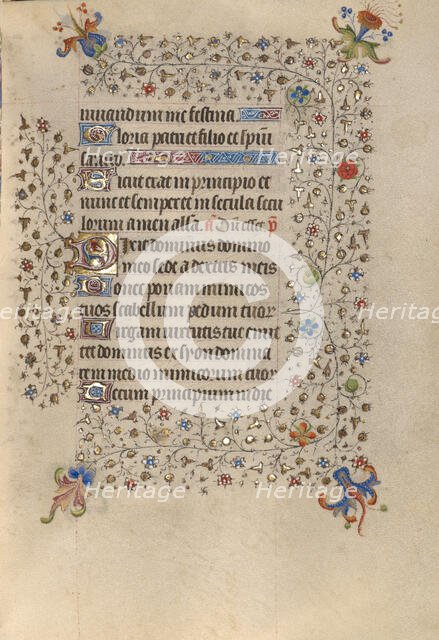 iuuandum me festina
Gloria patri et filio et spiri
tui sancto
Sicut erat in principio et
nunc et semper et in secula secu
lorum amen alla. a Du esse p
Dixit dominus domino
meo sede a dextris meis
Donec ponam inimicos
tuos scabellum pedum tuor
Virgam uirtutis tue emit
tet dominus ex syon domina
re in medio inimicorum tuor
Tecum principium in die
Heritage
Heritage
Heritage
Heritage
Heritage
Heritage